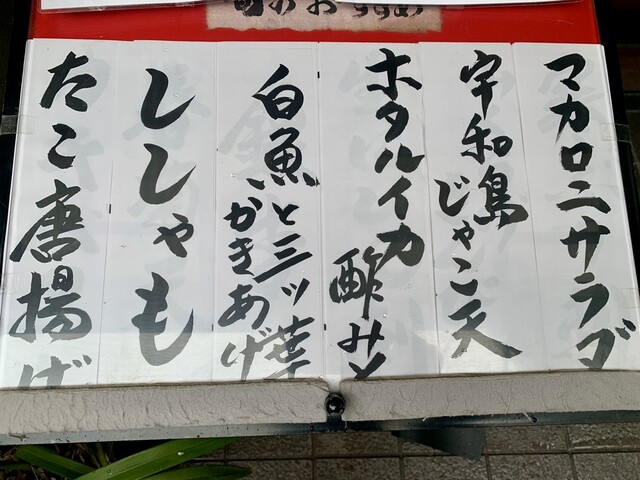 のおすすめ
マカロニサラダ
宇和島じゃこ天
ホタルイカ酢みそ
白魚と三ッ葉かきあげ
ししゃも
たこ唐揚げ